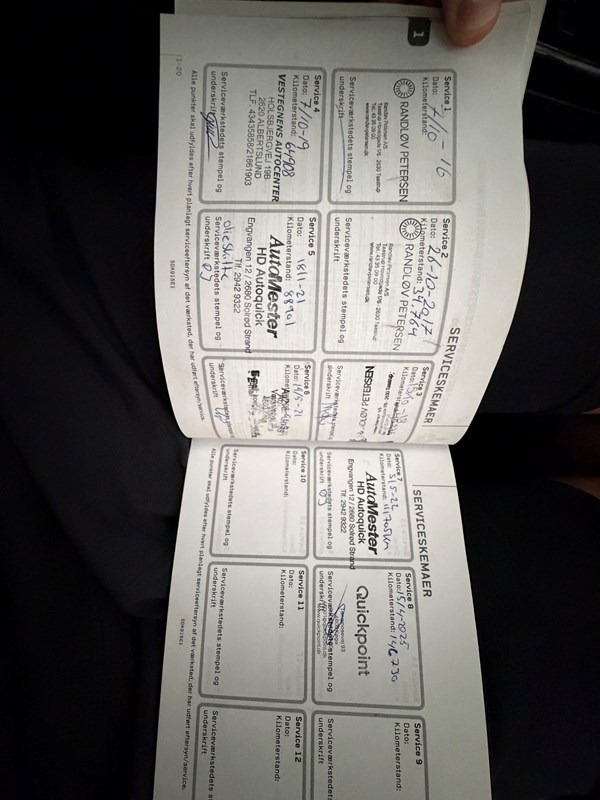 1
SERVICESKEMAER
Service 1
Dato: 7/10-16
Kilometerstand:
RANDLØV PETERSEN
Serviceværkstedets stempel og
underskrift
Service 2
Dato: 26-10-2017
Kilometerstand: 34.764
RANDLØV PETERSEN
Serviceværkstedets stempel og
underskrift
Service 3
Dato:
Kilometerstand:
Serviceværkstedets
underskrift
Service 4
Dato: 7/10-19
Kilometerstand: 64908
VESTEGNENS AUTOCENTER
HOLSBJERGVEJ 19B
2620 ALBERTSLUND
TLF. 43435858/21861903
Serviceværkstedets stempel og
underskrift
Service 5
Dato: 18/1-21
Kilometerstand: 88901
AutoMester
HD Autoquick
Engvangen 12 / 2680 Solrød Strand
Tlf. 2942 9322
olieskift
Serviceværkstedets stempel og
underskrift
Service 6
Dato: 19/5-21
Kilometerstand:
Serviceværkstedets
underskrift
Alle punkter skal udfyldes efter hvert planlagt serviceeftersyn af det værksted, der har udført eftersyn/service.
SERVICESKEMAER
Service 7
Dato: 5/5-22
Kilometerstand: 111705km
AutoMester
HD Autoquick
Engvangen 12 / 2680 Solrød Strand
Tlf. 2942 9322
Serviceværkstedets stempel og
underskrift
Service 8
Dato: 15/4-2025
Kilometerstand: 146730
Quickpoint
www.quickpoint.dk
Serviceværkstedets stempel og
underskrift
Service 9
Dato:
Kilometerstand:
Serviceværkstedets
underskrift
Service 10
Dato:
Kilometerstand:
Serviceværkstedets stempel og
underskrift
Service 11
Dato:
Kilometerstand:
Serviceværkstedets stempel og
underskrift
Service 12
Dato:
Kilometerstand:
Serviceværkstedets
underskrift
Alle punkter skal udfyldes efter hvert planlagt serviceeftersyn af det værksted, der har udført eftersyn/service.